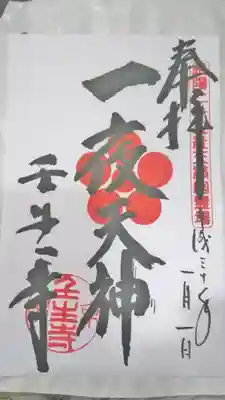 奉拝
平成三十年
一月一日
一夜天神
壬生寺
壬生寺